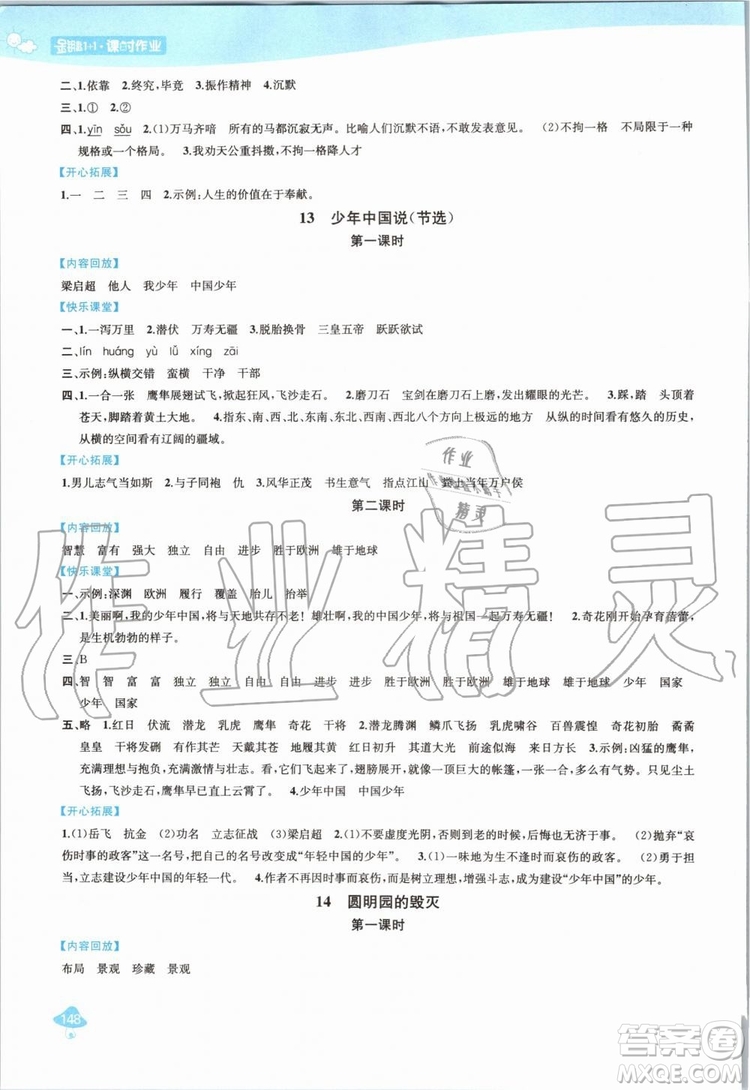 金钥匙1+1·课时作业
二、1.依靠 2.终究，毕竟 3.振作精神 4.沉默
三、1.① 2.②
四、1.yīn sǒu 2.(1)万马齐喑 所有的马都沉寂无声。比喻人们沉默不语，不敢发表意见。 (2)不拘一格 不局限于一种
规格或一个格局。 3.我劝天公重抖擞，不拘一格降人才
【开心拓展】
1.一 二 三 四 2.示例：人生的价值在于奉献。
13 少年中国说(节选)
第一课时
【内容回放】
梁启超 他人 我少年 中国少年
【快乐课堂】
一、1.一泻万里 2.潜伏 万寿无疆 3.脱胎换骨 三皇五帝 跃跃欲试
二、lín huáng yù lǚ xíng zāi
三、示例：纵横交错 蛮横 干净 干部
四、1.一合一张 鹰隼展翅试飞，掀起狂风，飞沙走石。 2.磨刀石 宝剑在磨刀石上磨，发出耀眼的光芒。 3.踩，踏 头顶着
苍天，脚踏着黄土大地。 4.指东、南、西、北、东南、东北、西南、西北八个方向上极远的地方 从纵的时间看有悠久的历史，
从横的空间看有辽阔的疆域。
【开心拓展】
1.男儿志气当如斯 2.与子同袍 3.风华正茂 书生意气 指点江山 粪土当年万户侯
第二课时
【内容回放】
智慧 富有 强大 独立 自由 进步 胜于欧洲 雄于地球
【快乐课堂】
一、示例：深渊 欧洲 履行 覆盖 胎儿 抬举
二、1.美丽啊，我的少年中国，将与天地共存不老！雄壮啊，我的中国少年，将与祖国一起万寿无疆！ 2.奇花刚开始孕育蓓蕾，
是生机勃勃的样子。
三、B
四、智 智 富 富 强 强 独立 独立 自由 自由 进步 进步 胜于欧洲 胜于欧洲 雄于地球 雄于地球 少年 国家
少年 国家
五、略 1.红日 伏流 潜龙 乳虎 鹰隼 奇花 干将 2.潜龙腾渊 鳞爪飞扬 乳虎啸谷 百兽震惶 奇花初胎 矞矞
皇皇 干将发硎 有作其芒 天戴其苍 地履其黄 红日初升 其道大光 前途似海 来日方长 3.示例：凶猛的鹰隼，
充满理想与抱负，充满激情与壮志。看，它飞起来了，翅膀展开来，就像一顶巨大的帐篷，一张一合，多有气势。只见尘土
飞扬，飞沙走石。鹰隼在蓝天中翱翔！ 4.少年中国 中国少年
【开心拓展】
1.(1)岳飞 抗金 (2)功名 立志征战 (3)梁启超 2.年轻人不要虚度光阴，否则到老时，后悔也无济于事。 (2)抛弃“哀
伤时事的政客”这一名号，把我们的名号改变成“年轻中国的少年”。 3.(1)一味地为生不逢时而哀伤的政客。 (2)充满勇
气，立志建设少年中国的年轻一代。 4.作者不再为自己而哀伤，不再为时事而哀伤，增强斗志，成为建设“少年中国”的一员。
14 圆明园的毁灭
第一课时
【内容回放】
布局 景观 珍藏 景观
148
作业精灵
作业
精灵
答案圈
MXQE.COM